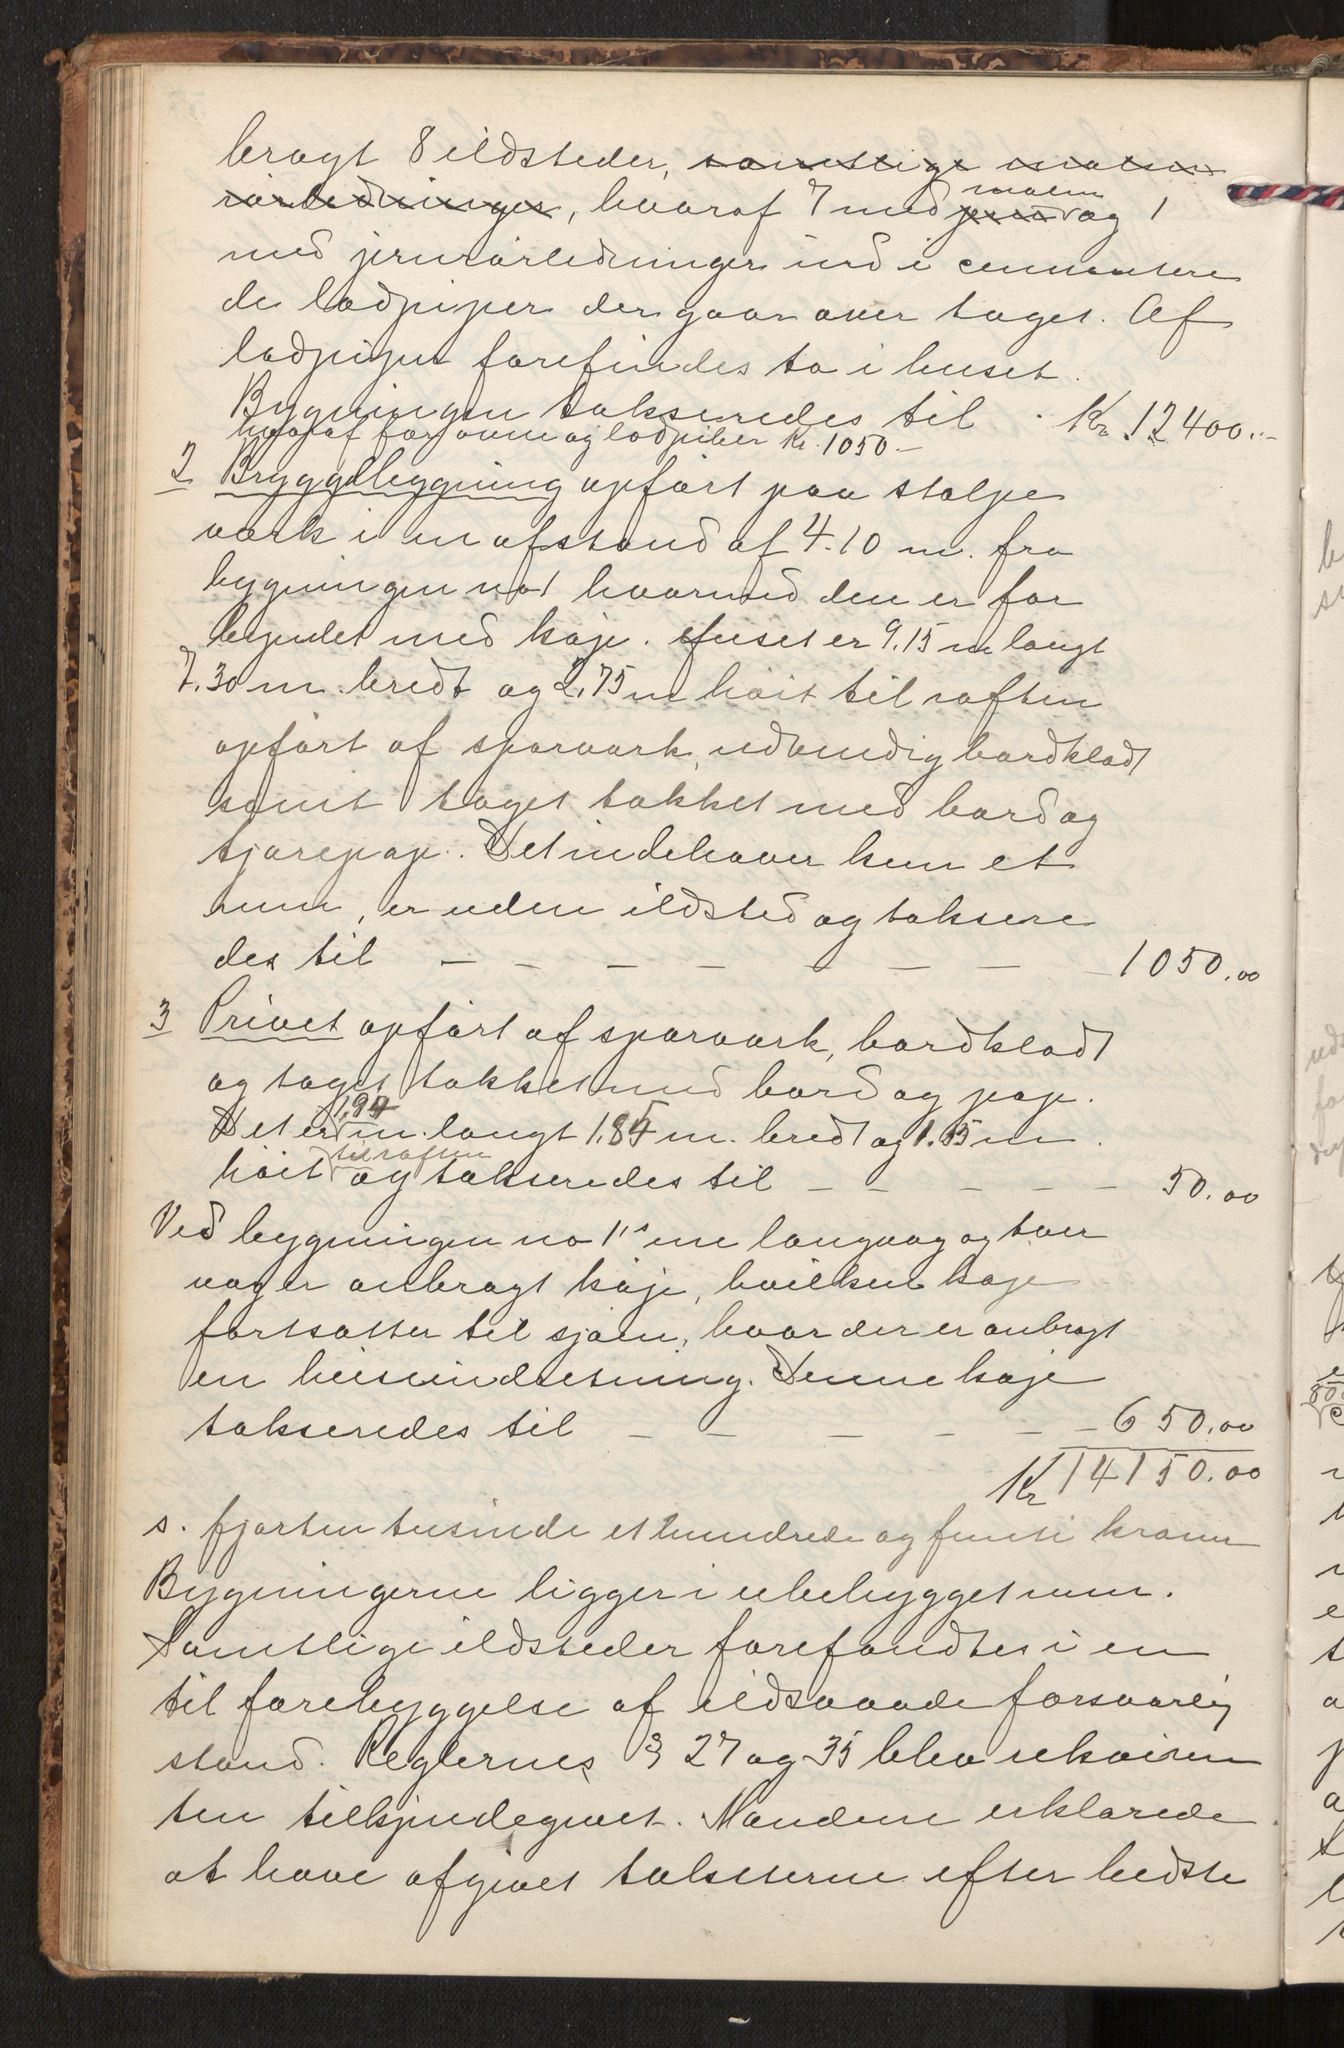 bragt 8 ildsteder, samtlige uden
rørledninger, hvoraf 7 med jern muren og 1
med jernrørledninger ind i cementere
de lodpiper der gaar over taget. Af
lodpiper forefindes to i huset.
Bygningen takseredes til . Kr 12400.-
hvoraf for ovne og lodpiber Kr. 1050-
2 Bryggebygning opført paa stolpe
værk i en afstand af 4.10 m. fra
bygningen no 1 hvormed den er for
bundet med kaje. Huset er 9.15 m langt
7.30 m. bredt og 2.75 m høit til raften
opført af sparværk, udvendig bordklædt
samt taget tækket med bord og
tjærepap. Det indehaver kun et
rum, er uden ildsted og taksere
des til — — — — — — — — 1050.00
3 Privet opført af sparværk, bordklædt
og taget tækket med bord og pap.
1,94
Det er m. langt 1.85 m. bredt og 1.85 m
til raften
høit og takseredes til — — — — — 50.00
Ved bygningen no 1's ene langvæg og tver
væg er anbragt kaje, hvilken kaje
fortsætter til sjøen, hvor der er anbragt
en heiseindretning. Denne kaje
takseredes til — — — — — — 650.00
Kr 14150.00
s. fjorten tusinde et hundrede og femti kroner
Bygningerne ligger i ubebygget rum.
Samtlige ildsteder forefandtes i en
til forebyggelse af ildsvaade forsvarlig
stand. Reglernes § 27 og 35 blev rekviren
ten tilkjendegivet. Mændene erklærede
at have afgivet taksterne efter bedste